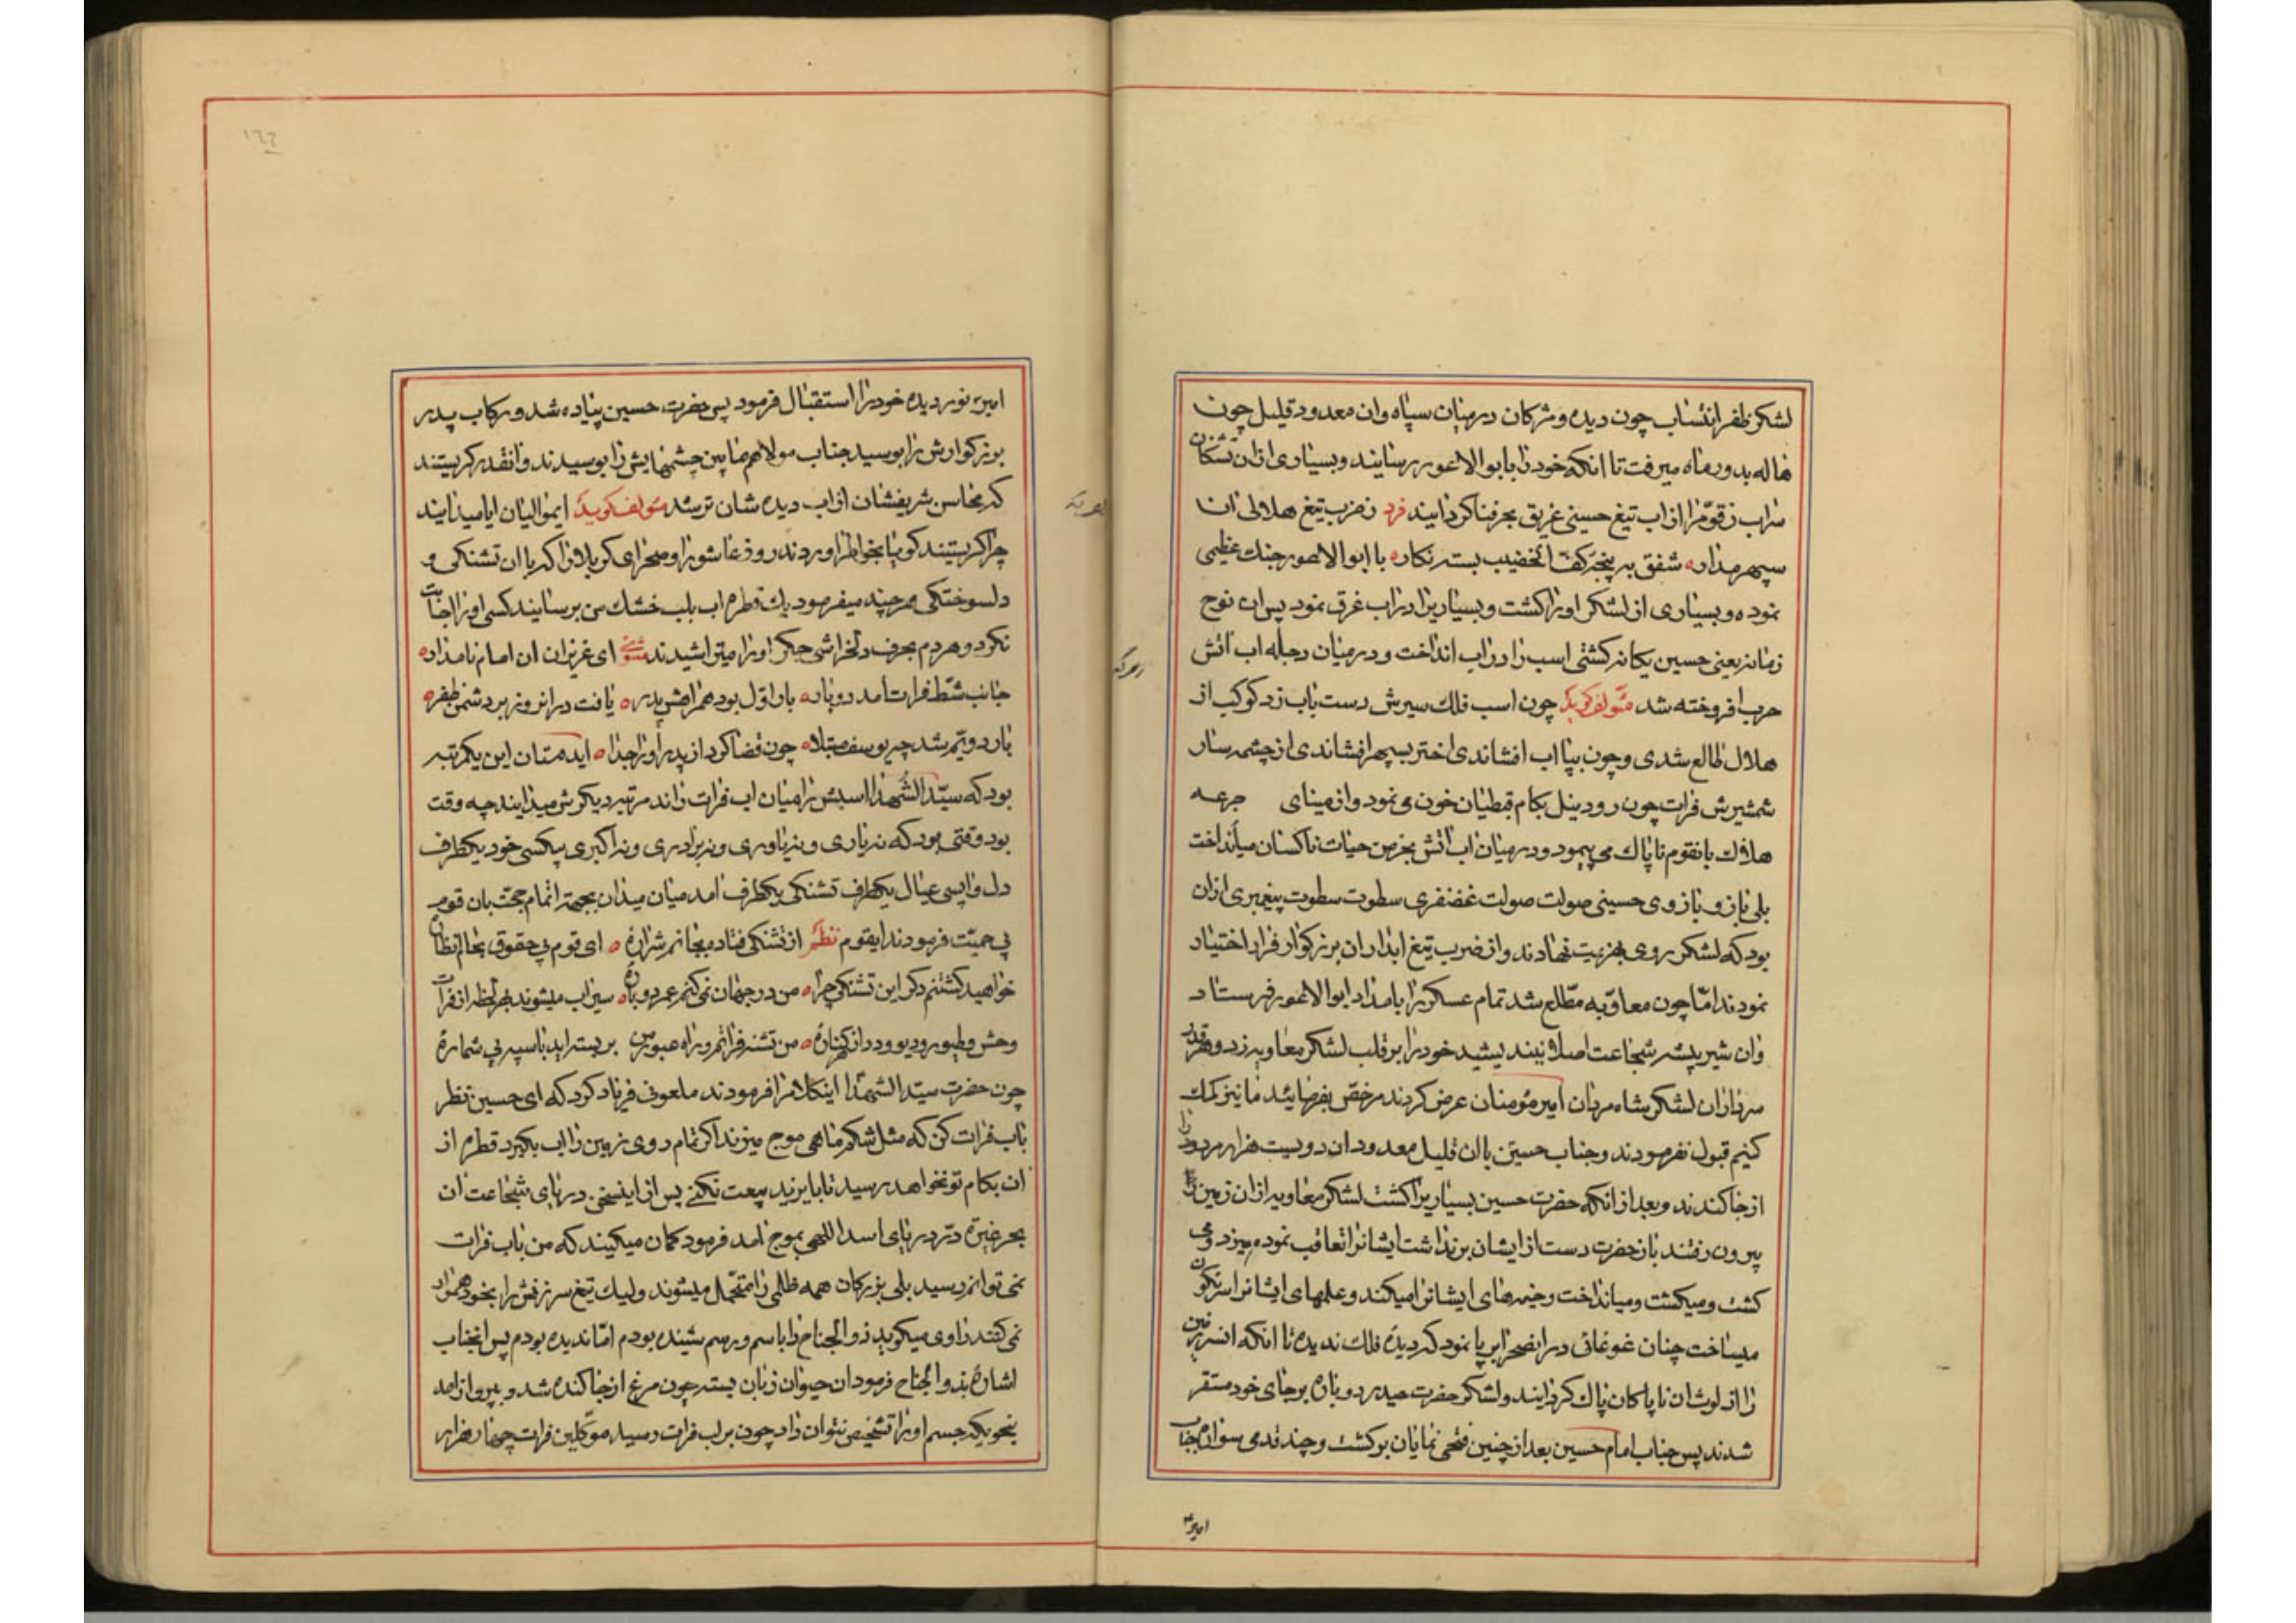 لشکر ظفر انتساب چون دیده و مژکان در میان سپاه وان معدود قلیل چون
هاله بدور ماه میرفت تا انکه خود را بابوالاعور رسانیند و بسیاری ازان تشنکان
سراب زقوّم را از اب تیغ حسینی غریق بحر فنا کردانیند فرد ز ضرب تیغ هلالی ان
سپهر مدار شفق به پنجه کفّ الخضیب بسته نکار با ابوالاعور جنک عظیمی
نموده و بسیاری از لشکر اورا کشت و بسیاریرا در اب غرق نمود پس ان نوح
زمانه یعنی حسین یکانه کشتی اسب را در اب انداخت و در میان دجله اب اتش
حرب افروخته شد مئولف کوید چون اسب فلک سیرش دست باب زد کوکب از
هلال طالع شدی و چون بپا اب افشاندی اختر بسپهر افشاندی از چشمه سار
شمشیرش فرات چون رود نیل بکام قبطیان خون می نمود و از مینای جرعه
هلاک بانقوم ناپاک می پیمود و در میان اب اتش بخرمن حیات ناکسان میانداخت
بلی بازو بازوی حسینی صولت صولت غضنفری سطوت سطوت پیغمبری ازان
بود که لشکر روی بهزیمت نهادند و از ضرب تیغ ابدار ان بزرکوار فرار اختیار
نمودند امّا چون معاویه مطّلع شد تمام عسکر را بامداد ابوالاعور فرستاد
وان شیر بیشه شجاعت اصلا نیندیشید خود را بر قلب لشکر معاویه زد و هر قدر
سرداران لشکر شاه مردان امیر مؤمنان عرض کردند مرخّص بفرمائید ما نیز کمک
کنیم قبول نفرمودند و جناب حسین با ان قلیل معدود ان دویست هزار مردود را
از جا کندند و بعد از انکه حضرت حسین بسیاریرا کشت لشکر معاویه ازان زمین
بیرون رفتند باز حضرت دست از ایشان بر نداشت ایشانرا تعاقب نموده میزد و می
کشت و میکشت و میانداخت و خیمه های ایشانرا میکند و علمهای ایشانرا سرنکون
میساخت چنان غوغائی در انصحرا بر پا نمود که دیده فلک ندیده تا انکه انسرزمین
را از لوث ان ناپاکان پاک کردانیند و لشکر حضرت حیدر دوباره بر جای خود مستقر
شدند پس جناب امام حسین بعد از چنین فتحی نمایان برکشت و چند قدمی سواره جناب
امیر
١٦٦
امیر نور دیده خود را استقبال فرمود پس حضرت حسین پیاده شد و رکاب پدر
بزرکوارش را بوسید جناب مولا هم مابین چشمهایش را بوسیدند و انقدر کریستند
که محاسن شریفشان از اب دیده شان تر شد مئولف کوید ایموالیان ایا میدانیند
چرا کریستند کویا بخواطر اوردند روز عاشورا و صحرای کربلا را که با ان تشنکی و
دلسوختکی هر چند میفرمود یک قطره اب بلب خشک من برسانیند کسی اورا اجابت
نکرد و هر دم بحرف دلخراشی جکر اورا میتراشیدند مثنوی ای عزیزان ان امام نامدار
جانب شطّ فرات امد دوبار بار اوّل بود همراهش پدر یافت در انروز بر دشمن ظفر
بار دویّم شد چو یوسف مبتلا چون قضا کرد از پدر اورا جدا ایدوستان این یکمرتبه
بود که سیّد الشّهدا اسبش را میان اب فرات راند مرتبه دیکرش میدانیند چه وقت
بود وقتی بود که نه یاری و نه یاوری و نه برادری و نه اکبری بیکسی خود یکطرف
دل واپسی عیال یکطرف تشنکی یکطرف امد میان میدان بجهة اتمام حجّت بان قوم
بی حمیّت فرمودند ایقوم نظم از تشنکی فتاده بجانم شراره ای قوم بی حقوق بحالم نظاره
خواهید کشتنم دکر این تشنکی چرا من در جهان نمی کنم عمر دوباره سیراب میشوند بهر لحظه از فرات
وحش و طیور و دیو و دد از هر کناره من تشنه فراتم و راه عبور من بر بسته اید با سپه بی شماره
چون حضرت سیّد الشّهدا اینکلام را فرمودند ملعونی فریاد کرد که ای حسین نظر
باب فرات کن که مثل شکم ماهی موج میزند اکر تمام روی زمین را اب بکیرد قطره از
ان بکام تو نخواهد رسید تا با یزید بیعت نکنی پس از اینسخن دریای شجاعت ان
بحر غیرت و درّ دریای اسد اللهی بموج امد فرمود کمان میکنید که من باب فرات
نمی توانم رسید بلی بزرکان همه ظلمی را متحمّل میشوند ولیک تیغ سرزنش را بخود هموار
نمی کنند راوی میکوید ذوالجناح را باسم و رسم شنیده بودم امّا ندیده بودم پس انجناب
اشاره بذوالجناح فرمود ان حیوان زبان بسته چون مرغ از جا کنده شد و بپرواز امد
بنحویکه جسم اورا تشخیص نتوان داد چون بر لب فرات رسید موکّلین فرات چهار هزار